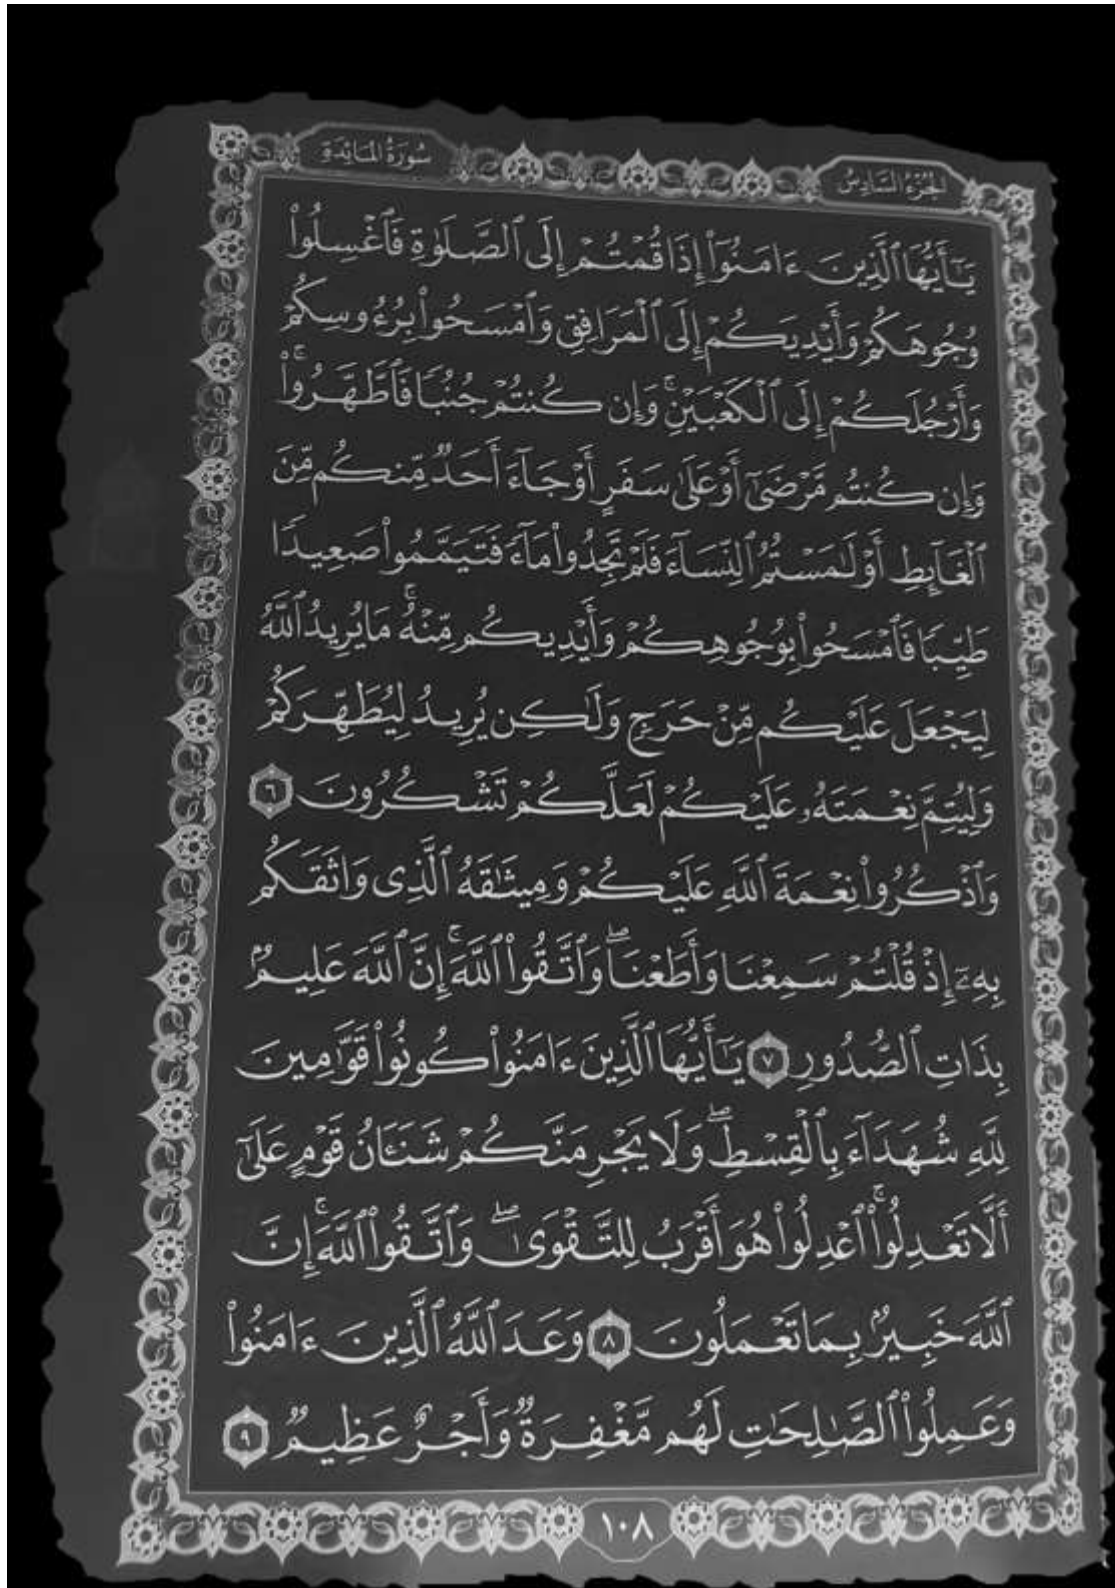 الجُزْءُ السَّادِسُ
سُورَةُ المَائِدَةِ
يَٰٓأَيُّهَا ٱلَّذِينَ ءَامَنُوٓا۟ إِذَا قُمْتُمْ إِلَى ٱلصَّلَوٰةِ فَٱغْسِلُوا۟
وُجُوهَكُمْ وَأَيْدِيَكُمْ إِلَى ٱلْمَرَافِقِ وَٱمْسَحُوا۟ بِرُءُوسِكُمْ
وَأَرْجُلَكُمْ إِلَى ٱلْكَعْبَيْنِ ۚ وَإِن كُنتُمْ جُنُبًا فَٱطَّهَّرُوا۟ ۚ
وَإِن كُنتُم مَّرْضَىٰٓ أَوْ عَلَىٰ سَفَرٍ أَوْ جَآءَ أَحَدٌ مِّنكُم مِّنَ
ٱلْغَآئِطِ أَوْ لَٰمَسْتُمُ ٱلنِّسَآءَ فَلَمْ تَجِدُوا۟ مَآءً فَتَيَمَّمُوا۟ صَعِيدًا
طَيِّبًا فَٱمْسَحُوا۟ بِوُجُوهِكُمْ وَأَيْدِيكُم مِّنْهُ ۚ مَا يُرِيدُ ٱللَّهُ
لِيَجْعَلَ عَلَيْكُم مِّنْ حَرَجٍ وَلَٰكِن يُرِيدُ لِيُطَهِّرَكُمْ
وَلِيُتِمَّ نِعْمَتَهُۥ عَلَيْكُمْ لَعَلَّكُمْ تَشْكُرُونَ ٦
وَٱذْكُرُوا۟ نِعْمَةَ ٱللَّهِ عَلَيْكُمْ وَمِيثَٰقَهُ ٱلَّذِى وَاثَقَكُم
بِهِۦٓ إِذْ قُلْتُمْ سَمِعْنَا وَأَطَعْنَا ۖ وَٱتَّقُوا۟ ٱللَّهَ ۚ إِنَّ ٱللَّهَ عَلِيمٌۢ
بِذَاتِ ٱلصُّدُورِ ٧ يَٰٓأَيُّهَا ٱلَّذِينَ ءَامَنُوا۟ كُونُوا۟ قَوَّٰمِينَ
لِلَّهِ شُهَدَآءَ بِٱلْقِسْطِ ۖ وَلَا يَجْرِمَنَّكُمْ شَنَـَٔانُ قَوْمٍ عَلَىٰٓ
أَلَّا تَعْدِلُوا۟ ۚ ٱعْدِلُوا۟ هُوَ أَقْرَبُ لِلتَّقْوَىٰ ۖ وَٱتَّقُوا۟ ٱللَّهَ ۚ إِنَّ
ٱللَّهَ خَبِيرٌۢ بِمَا تَعْمَلُونَ ٨ وَعَدَ ٱللَّهُ ٱلَّذِينَ ءَامَنُوا۟
وَعَمِلُوا۟ ٱلصَّٰلِحَٰتِ لَهُم مَّغْفِرَةٌ وَأَجْرٌ عَظِيمٌ ٩
١٠٨